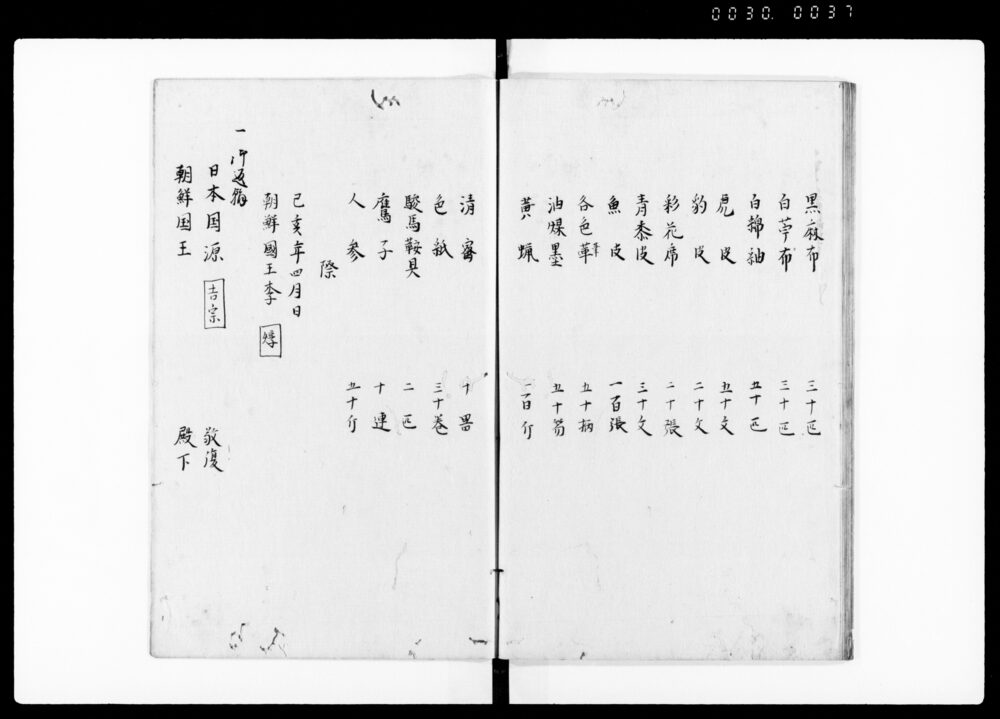 0030. 0037
黒麻布 三十匹
白苧布 三十匹
白綿紬 五十匹
虎皮 五十文
豹皮 二十文
彩花席 二十張
青黍皮 三十文
魚皮 一百張
各色筆 五十柄
油煤墨 五十笏
黄蝋 一百斤
清蜜 十器
色紙 三十巻
駿馬鞍具 二匹
鷹子 十連
人参 五十斤
際
己亥年四月日
朝鮮國王李 焞
一御返翰
日本国源 吉宗 敬復
朝鮮国王 殿下